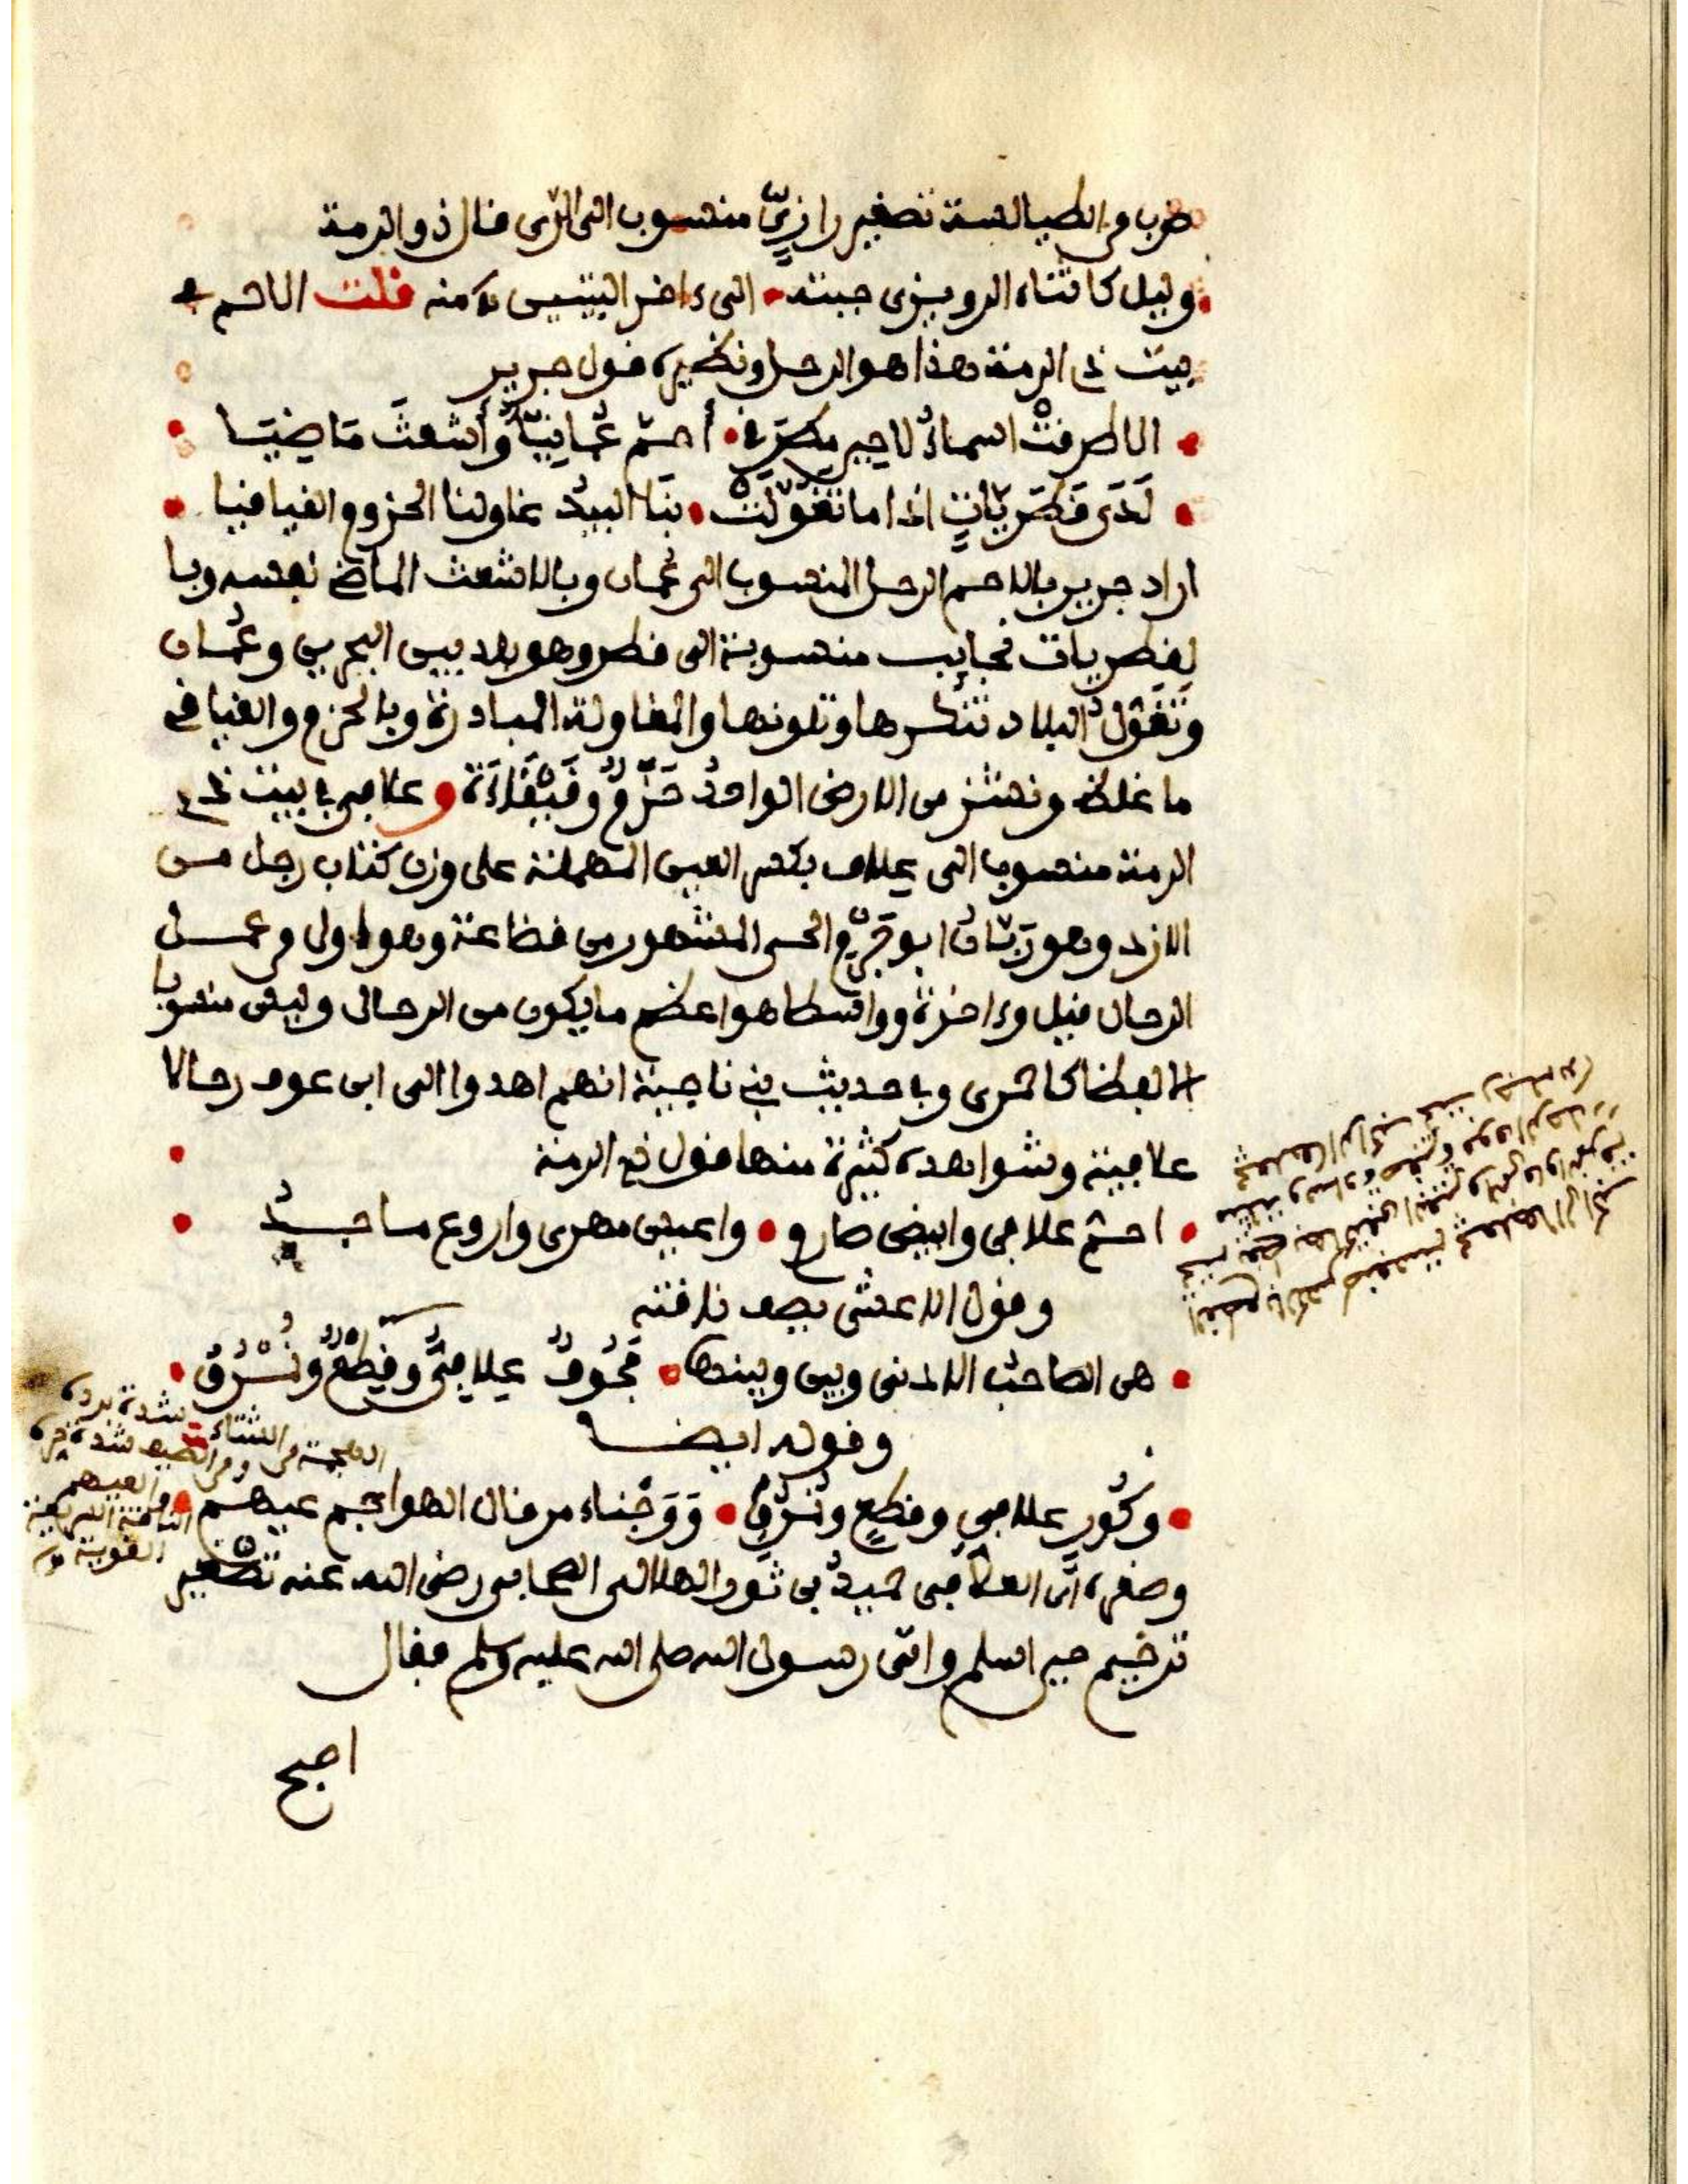 ضرب من الطيالسة تصغير رازيّ منسوب الى الرّي قال ذو الرمة
وليل كاثناء الرويزي جبته • الى ءاخر البيتين كامنه قلت الاحم في
بيت ذي الرمة هذا هو الرحل ونظيره قول جرير
• الا طرقت اسماءُ لا حين مطرَقِ • أحمّ عُمانيّا وأشعثَ مَاضيَا
• لَدَى قَطَريّاتٍ اذا ما تغوّلَتْ • بنَا البيدُ غاولنا الحزوم الفيافيا •
اراد جرير بالاحم الرحل المنسوب الى عُمان وبالاشعث الماضي نفسه وبا
لقطريات نجايب منسوبة الى قطر وهو بلد بين البحرين وعُمان
وتَغَوّلُ البلاد تنكرها وتلونها والمغاولة المبادرة وبالحزوم والفيافي
ما غلظ ونشز من الارض الواحدُ حَزْمٌ وفَيْفَاءَةٌ وعلافي في بيت ذي
الرمة منسوبا الى علاف بكسر العين المهملة على وزن كتاب رجل من
الازد وهو ربّانُ ابو جَرْمٍ الحي المشهور من قضاعة وهو اول من عمل
الرحال قيل وءاخرة وواسطا هو اعظم ما يكون من الرحال وليس منسوبا
الا لفظا كاحمري وفي حديث بني ناجية انهم اهدوا الى ابن عوف رحالا
علافية وشواهده كثيرة منها قول ذي الرمة
• احمّ علافي وابيض صارم • واعيس مهري واروع ماجدُ
وقول الاعشى يصف ناقته
• هي الصاحبُ الادنى وبيني وبينها • مَجُوفٌ عِلافيٌّ وقِطْعٌ ونُمْرُقُ •
وقوله ايضا
• وكُورٍ علافيٍ وقطعٍ ونمرقٍ • وَوَجْناء مرقال الهواجر عيهم
وصغره اي العلافي حُميدُ بن ثور الهلالي الصحابي رضي الله عنه تصغير
ترخيم حين اسلم واتى رسول الله صلى الله عليه وسلم فقال
اصبح
الشتاء شدة برده
الصيف شدة حره
العيهم
الناقة السريعة
القوية